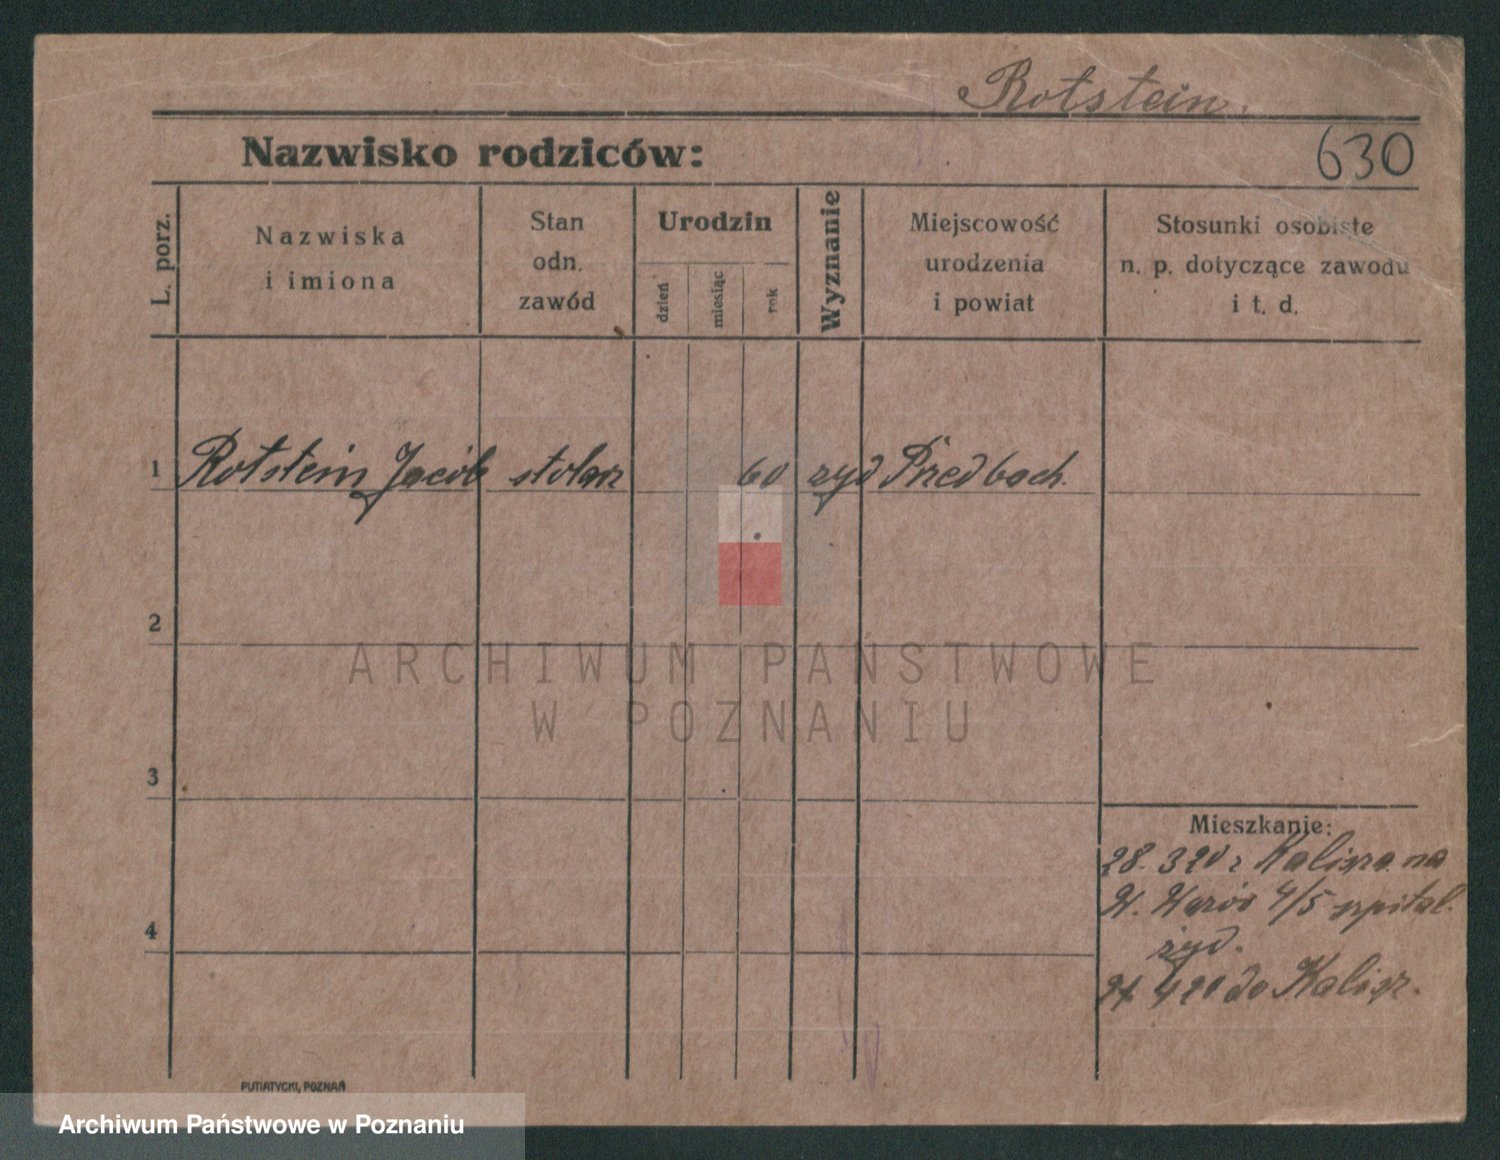 Rotstein.
Nazwisko rodziców:
630
L. porz.
Nazwiska
i imiona
Stan
odn.
zawód
Urodzin
dzień
miesiąc
rok
Wyznanie
Miejscowość
urodzenia
i powiat
Stosunki osobiste
n. p. dotyczące zawodu
i t. d.
1 Rotstein Jacób stolarz 60 żyd
2
3
4
ARCHIWUM PAŃSTWOWE
W POZNANIU
Mieszkanie:
28. 3 20 z Kalisza na
4/5 szpital.
żyd.
4 20 do Kalisz.
PUTIATYCKI, POZNAŃ
Archiwum Państwowe w Poznaniu